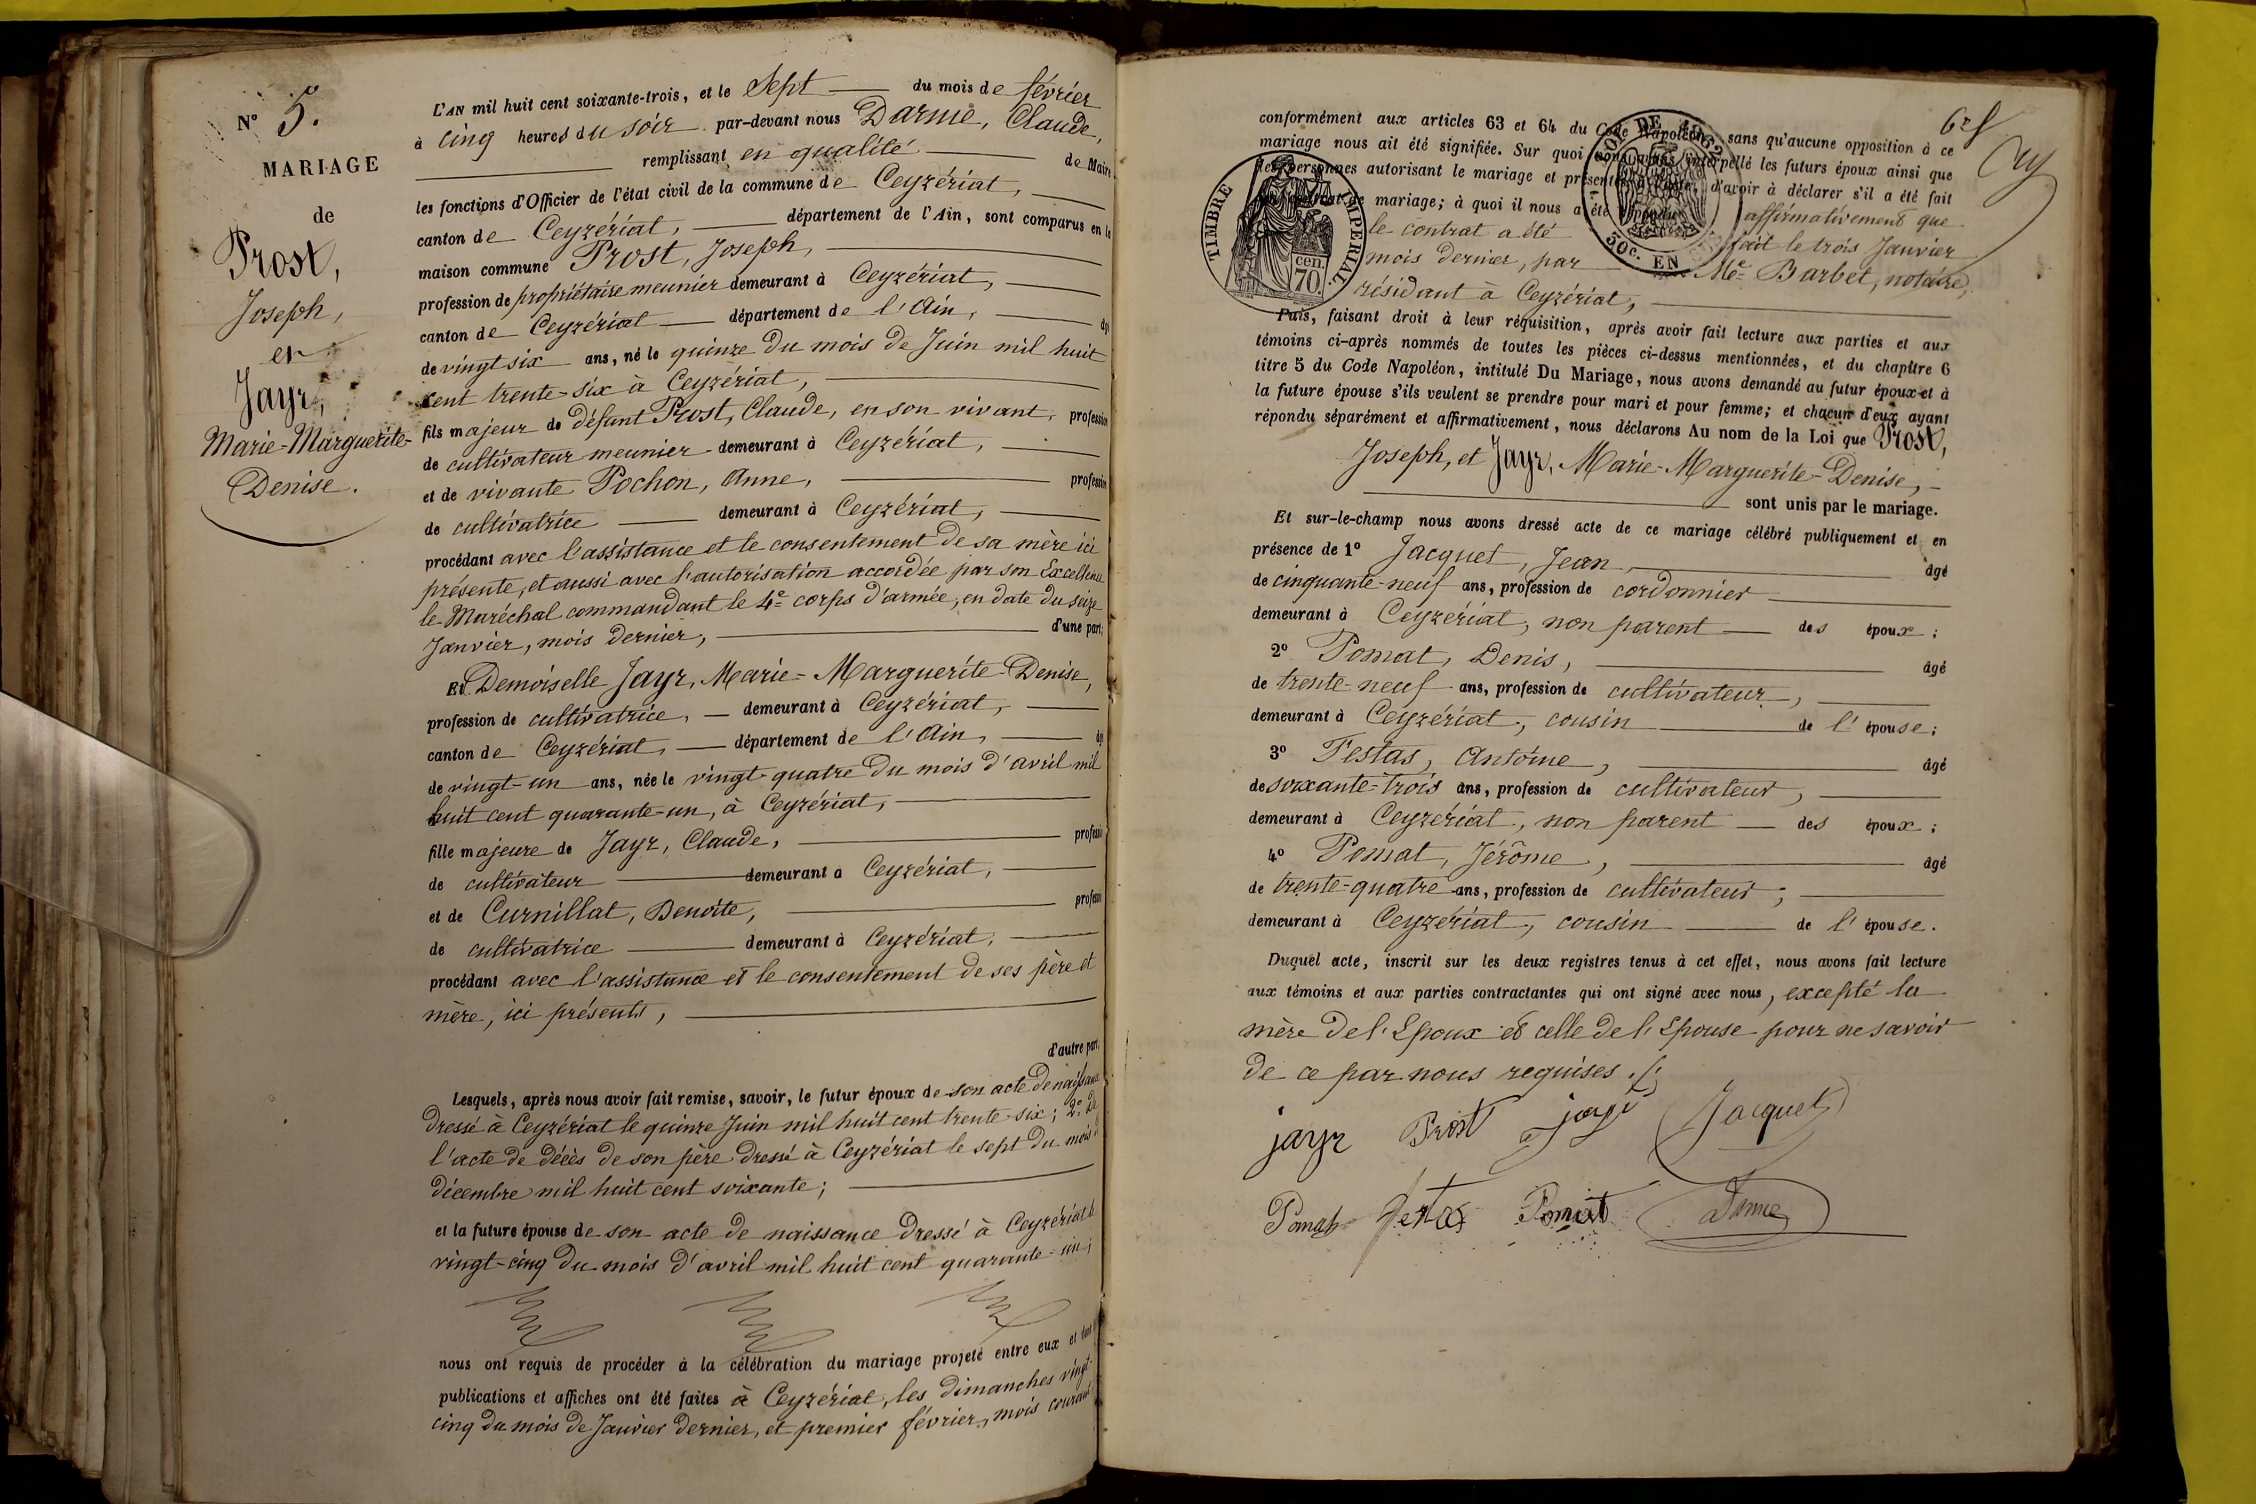 N° 5.
MARIAGE
de
Prost,
Joseph,
et
Jayr,
Marie-Marguerite-
Denise.
L'AN mil huit cent soixante-trois, et le Sept du mois de février
à cinq heures du soir par-devant nous Darme, Claude,
remplissant en qualité de Maire
les fonctions d'Officier de l'état civil de la commune de Ceyzériat,
canton de Ceyzériat, département de l'Ain, sont comparus en la
maison commune Prost, Joseph,
profession de propriétaire meunier demeurant à Ceyzériat,
canton de Ceyzériat département de l'Ain, âgé
de vingt six ans, né le quinze du mois de Juin mil huit
cent trente-six à Ceyzériat,
fils majeur de défunt Prost, Claude, en son vivant, profession
de cultivateur meunier demeurant à Ceyzériat,
et de vivante Pochon, Anne, profession
de cultivatrice demeurant à Ceyzériat,
procédant avec l'assistance et le consentement de sa mère ici
présente, et aussi avec l'autorisation accordée par son Excellence
le Maréchal commandant le 4e corps d'armée, en date du seize
Janvier, mois dernier, d'une part;
Et Demoiselle Jayr, Marie-Marguerite-Denise,
profession de cultivatrice, demeurant à Ceyzériat,
canton de Ceyzériat, département de l'Ain,
de vingt-un ans, née le vingt-quatre du mois d'avril mil
huit cent quarante-un, à Ceyzériat,
fille majeure de Jayr, Claude, profession
de cultivateur demeurant à Ceyzériat,
et de Curnillat, Benoite, profession
de cultivatrice demeurant à Ceyzériat,
procédant avec l'assistance et le consentement de ses père et
mère, ici présents,
d'autre part.
Lesquels, après nous avoir fait remise, savoir, le futur époux de son acte de naissance
dressé à Ceyzériat le quinze Juin mil huit cent trente-six; 2° de
l'acte de décès de son père dressé à Ceyzériat le sept du mois
décembre mil huit cent soixante;
et la future épouse de son acte de naissance dressé à Ceyzériat le
vingt-cinq du mois d'avril mil huit cent quarante-un;
nous ont requis de procéder à la célébration du mariage projeté entre eux et dont
publications et affiches ont été faites à Ceyzériat, les dimanches vingt-
cinq du mois de Janvier dernier, et premier février, mois courant
conformément aux articles 63 et 64 du Code Napoléon, sans qu'aucune opposition à ce
mariage nous ait été signifiée. Sur quoi nous avons interpellé les futurs époux ainsi que
les personnes autorisant le mariage et présentes d'avoir à déclarer s'il a été fait
de mariage; à quoi il nous a été répondu affirmativement que
le contrat a été fait le trois Janvier
mois dernier, par Me Barbet, notaire,
résidant à Ceyzériat,
TIMBRE IMPÉRIAL
70 cen.
50c. EN
Puis, faisant droit à leur réquisition, après avoir fait lecture aux parties et aux
témoins ci-après nommés de toutes les pièces ci-dessus mentionnées, et du chapitre 6
titre 5 du Code Napoléon, intitulé Du Mariage, nous avons demandé au futur époux et à
la future épouse s'ils veulent se prendre pour mari et pour femme; et chacun d'eux ayant
répondu séparément et affirmativement, nous déclarons Au nom de la Loi que Prost,
Joseph, et Jayr, Marie-Marguerite-Denise,
sont unis par le mariage.
Et sur-le-champ nous avons dressé acte de ce mariage célébré publiquement et en
présence de 1° Jacquet, Jean, âgé
de cinquante-neuf ans, profession de cordonnier
demeurant à Ceyzériat, non parent des époux;
2° Pomat, Denis, âgé
de trente-neuf ans, profession de cultivateur,
demeurant à Ceyzériat, cousin de l'épouse;
3° Festas, Antoine, âgé
de soixante-trois ans, profession de cultivateur,
demeurant à Ceyzériat, non parent des époux;
4° Pomat, Jérôme, âgé
de trente-quatre ans, profession de cultivateur;
demeurant à Ceyzériat, cousin de l'épouse.
Duquel acte, inscrit sur les deux registres tenus à cet effet, nous avons fait lecture
aux témoins et aux parties contractantes qui ont signé avec nous, excepté la
mère de l'Epoux et celle de l'Epouse pour ne savoir
de ce par nous requises.
jayr Prost jayr Jacquet
Pomat festas Pomat Darme